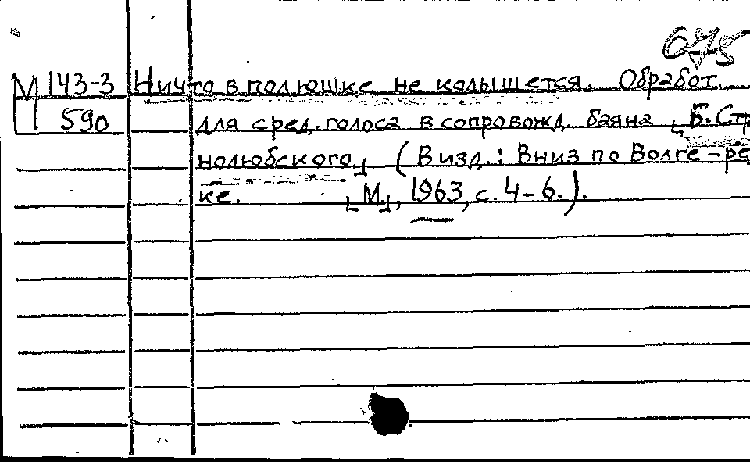 675
М 143-3 Ничто в полюшке не колышется. Обработ.
590 для сред. голоса в сопровожд. баяна [Б. Стр
нолюбского] (В изд.: Вниз по Волге-ре
ке. [М], 1963, с. 4-6.).